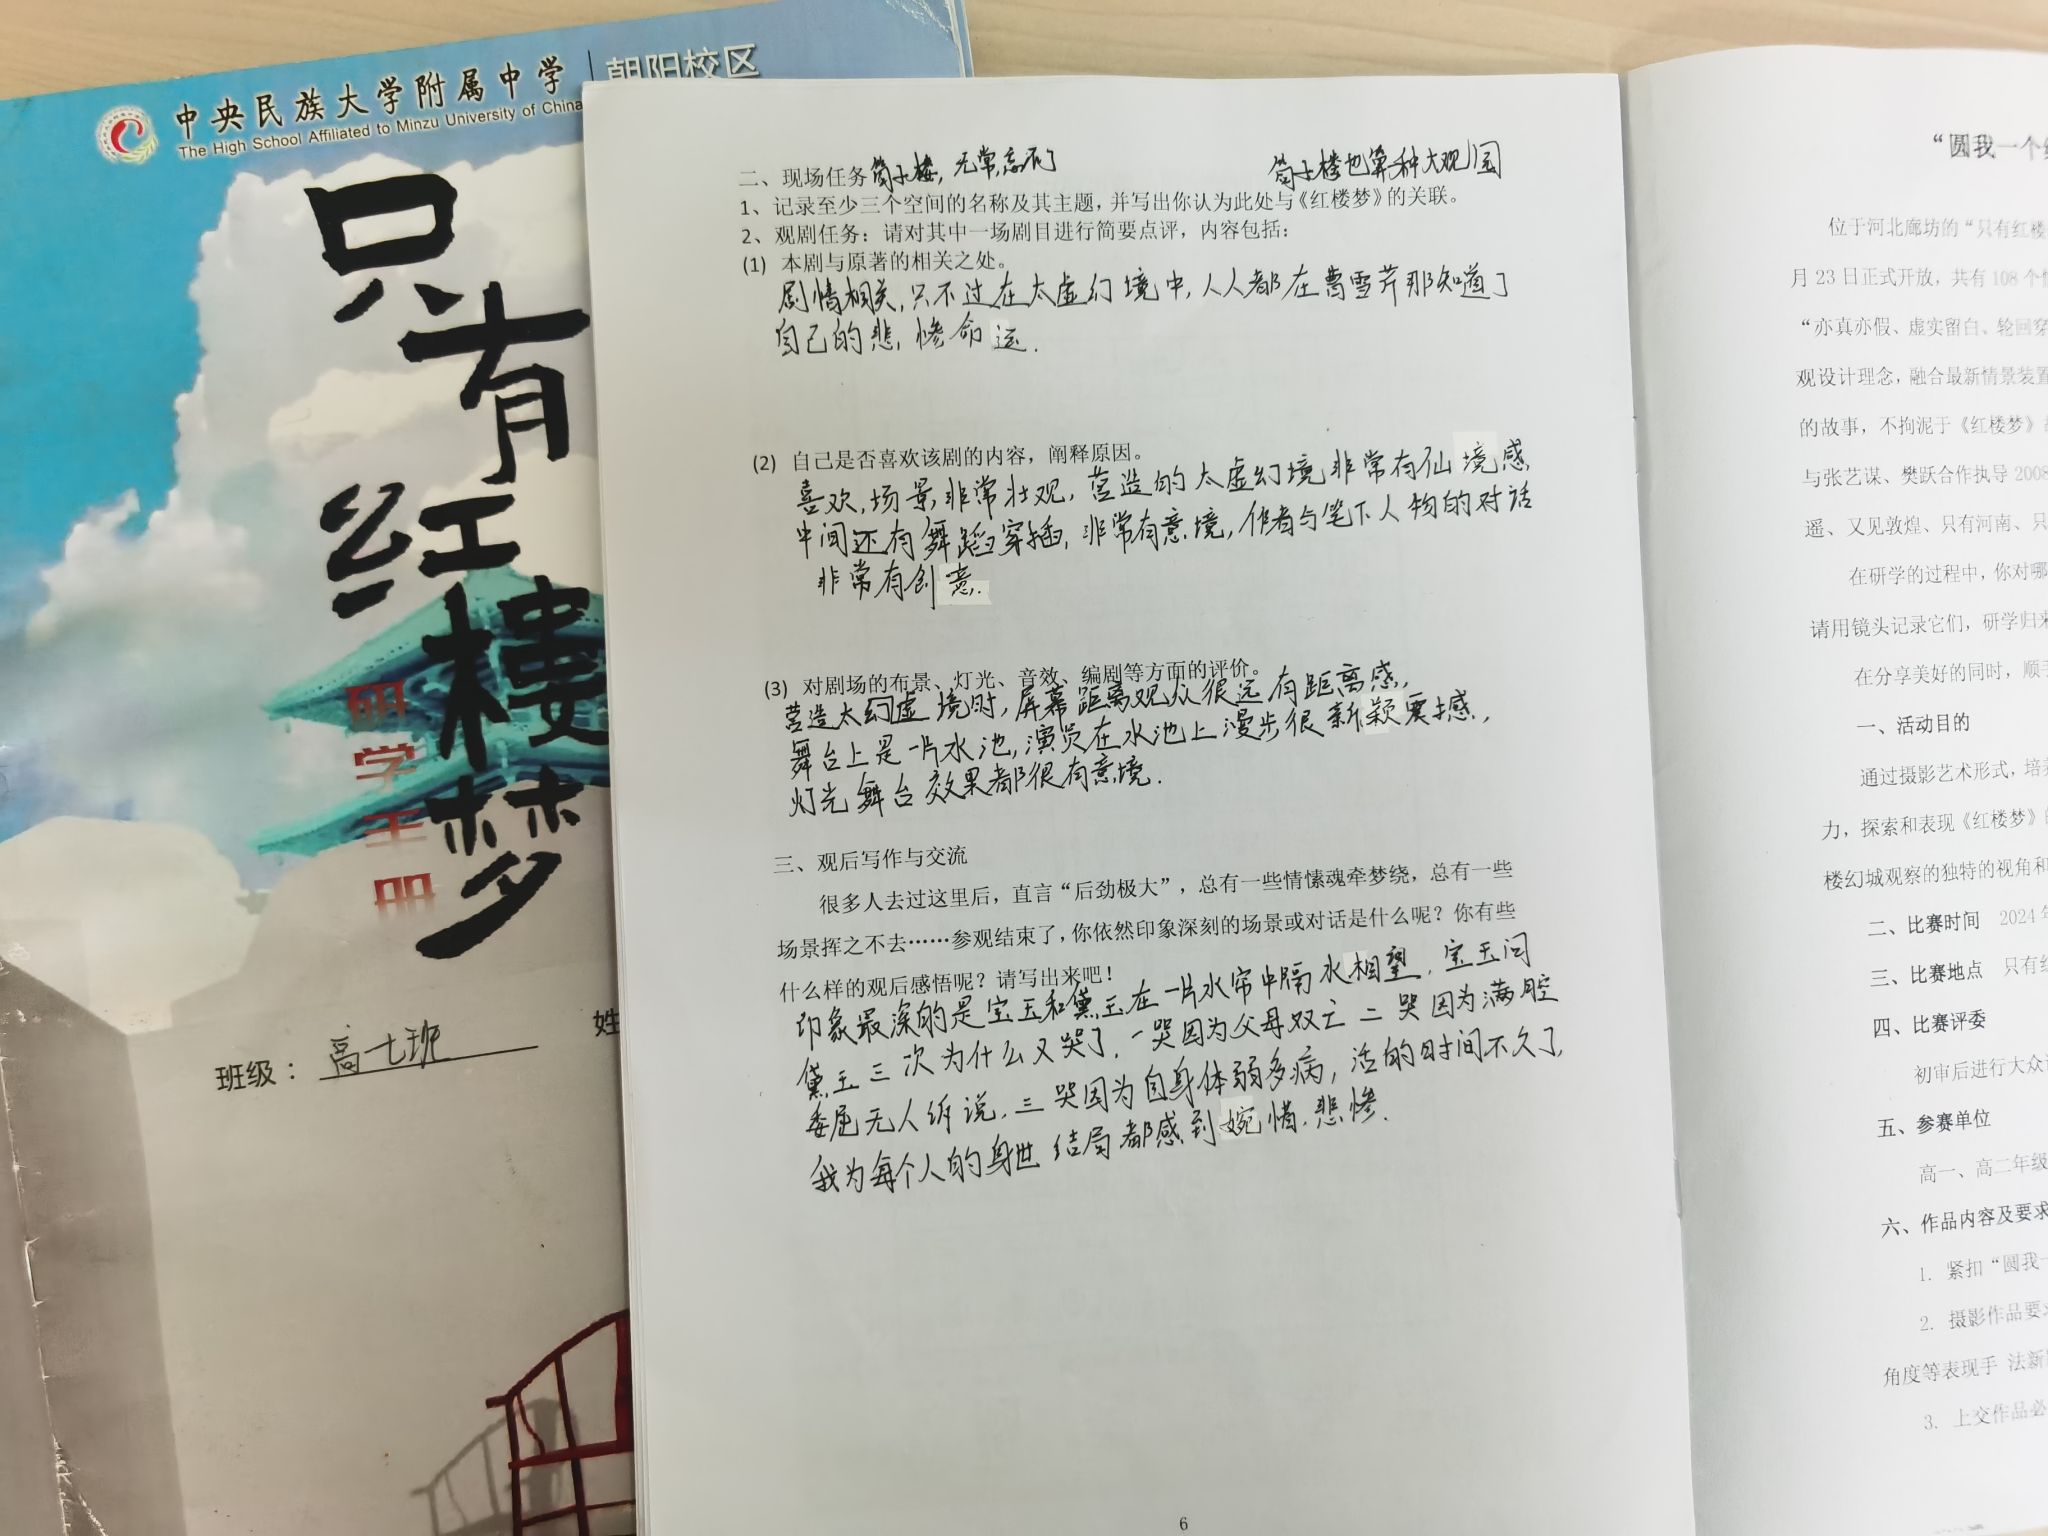 中央民族大学附属中学 朝阳校区
The High School Affiliated to Minzu University of China
只有红楼梦
研学手册
班级：高一七班
姓
二、现场任务 筒子楼，无常，忘不了 筒子楼也算一种大观园
1、记录至少三个空间的名称及其主题，并写出你认为此处与《红楼梦》的关联。
2、观剧任务：请对其中一场剧目进行简要点评，内容包括：
(1) 本剧与原著的相关之处。
剧情相关，只不过在太虚幻境中，人人都在曹雪芹那知道了
自己的悲惨命运．
(2) 自己是否喜欢该剧的内容，阐释原因。
喜欢，场景非常壮观，营造的太虚幻境非常有仙境感
中间还有舞蹈穿插，非常有意境，作者与笔下人物的对话
非常有创意．
(3) 对剧场的布景、灯光、音效、编剧等方面的评价。
营造太幻虚境时，屏幕距离观众很远有距离感，
舞台上是一片水池，演员在水池上漫步很新颖震撼，
灯光舞台效果都很有意境．
三、观后写作与交流
很多人去过这里后，直言“后劲极大”，总有一些情愫魂牵梦绕，总有一些
场景挥之不去……参观结束了，你依然印象深刻的场景或对话是什么呢？你有些
什么样的观后感悟呢？请写出来吧！
印象最深的是宝玉和黛玉在一片水帘中隔水相望，宝玉问
黛玉三次为什么又哭了，一哭因为父母双亡 二哭因为满腔
委屈无人诉说，三哭因为自身体弱多病，活的时间不久了，
我为每个人的身世结局都感到婉惜，悲惨．
6
“圆我一个
位于河北廊坊的“只有红楼
月 23 日正式开放，共有 108 个情
“亦真亦假、虚实留白、轮回穿
观设计理念，融合最新情景装置
的故事，不拘泥于《红楼梦》
与张艺谋、樊跃合作执导 2008
遥、又见敦煌、只有河南、只
在研学的过程中，你对哪
请用镜头记录它们，研学归来
在分享美好的同时，顺手
一、活动目的
通过摄影艺术形式，培养
力，探索和表现《红楼梦》的
楼幻城观察的独特的视角和
二、比赛时间 2024年
三、比赛地点 只有红
四、比赛评委
初审后进行大众
五、参赛单位
高一、高二年级
六、作品内容及要求
1. 紧扣“圆我一
2. 摄影作品要求
角度等表现手 法新
3. 上交作品必